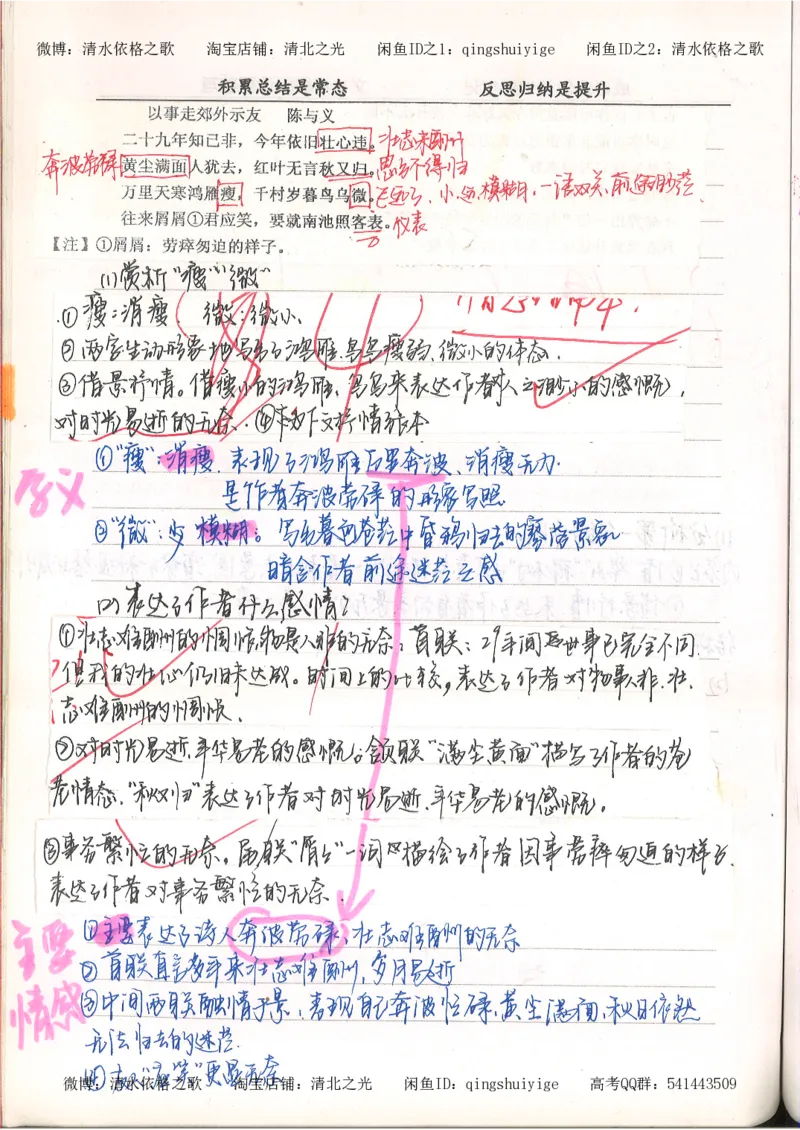 微博：清水依格之歌 淘宝店铺：清北之光 闲鱼ID之1：qingshuiyige 闲鱼ID之2：清水依格之歌
积累总结是常态 反思归纳是提升
以事走郊外示友 陈与义
二十九年知已非，今年依旧壮心违。壮志未酬
奔波劳碌 黄尘满面人犹去，红叶无言秋又归。思乡不得归
万里天寒鸿雁瘦，千村岁暮鸟乌微。小、模糊，一语双关，前途渺茫
往来屑屑①君应笑，要就南池照客衣。
【注】①屑屑：劳瘁匆迫的样子。
(1)赏析"瘦""微"
①瘦：消瘦 微：微小、
②两字生动形象地写出了鸿雁、鸟乌瘦弱、微小的体态。
③借景抒情。借瘦小的鸿雁、鸟乌来表达作者对人之渺小的感慨，
对时光易逝的无奈。④为下文抒情张本
含义
①"瘦"：消瘦，表现了鸿雁奔波、消瘦无力
是作者奔波劳碌的形象写照
②"微"：少 模糊。写出暮色苍茫中昏鸦归去的寥落景象
暗含作者前途迷茫之感
(2)表达了作者什么感情？
①壮志难酬的惆怅，物是人非的无奈：首联：29年间世事已完全不同
但我的壮心仍旧未达成。时间上的比较，表达了作者对物事人非、壮
志难酬的惆怅。
②对时光易逝、年华易老的感慨。颔联"满尘黄面"描写了作者的苍
老情态，"秋又归"表达了作者对时光易逝、年华易老的感慨。
③事务繁忙的无奈。尾联"屑屑"一词又描绘了作者因事劳瘁匆迫的样子，
表达了作者对事务繁忙的无奈。
主要情感
①主要表达了诗人奔波劳碌、壮志难酬的无奈
②首联直言多年来壮志难酬，岁月易逝
③中间两联融情于景，表现自己奔波忙碌，黄尘满面，秋日依然
无法归去的迷茫。
微博：清水依格之歌 淘宝店铺：清北之光 闲鱼ID：qingshuiyige 高考QQ群：541443509